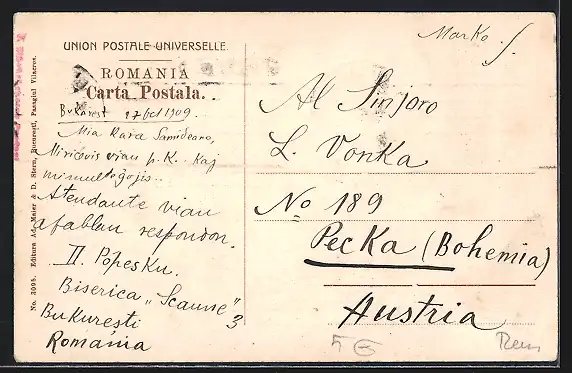 Marko. S.
UNION POSTALE UNIVERSELLE.
ROMANIA
Carta Postala.
Bukarest 17 Oct 1909.
Mia Kara Samideano,
Mi ricevis vian p. K. kaj
mi multe ĝojis.
Atendante vian
afablan respondon.
II. Popesku.
Biserica „Scaune" 3
Bukuresti
Romania
Al Sinjoro
L. Vonka
No 189
Pecka (Bohemia)
Austria
No. 3098. Editura Ad. Maier & D. Stern, Bucuresti, Pasagiul Vilacros.
5 €